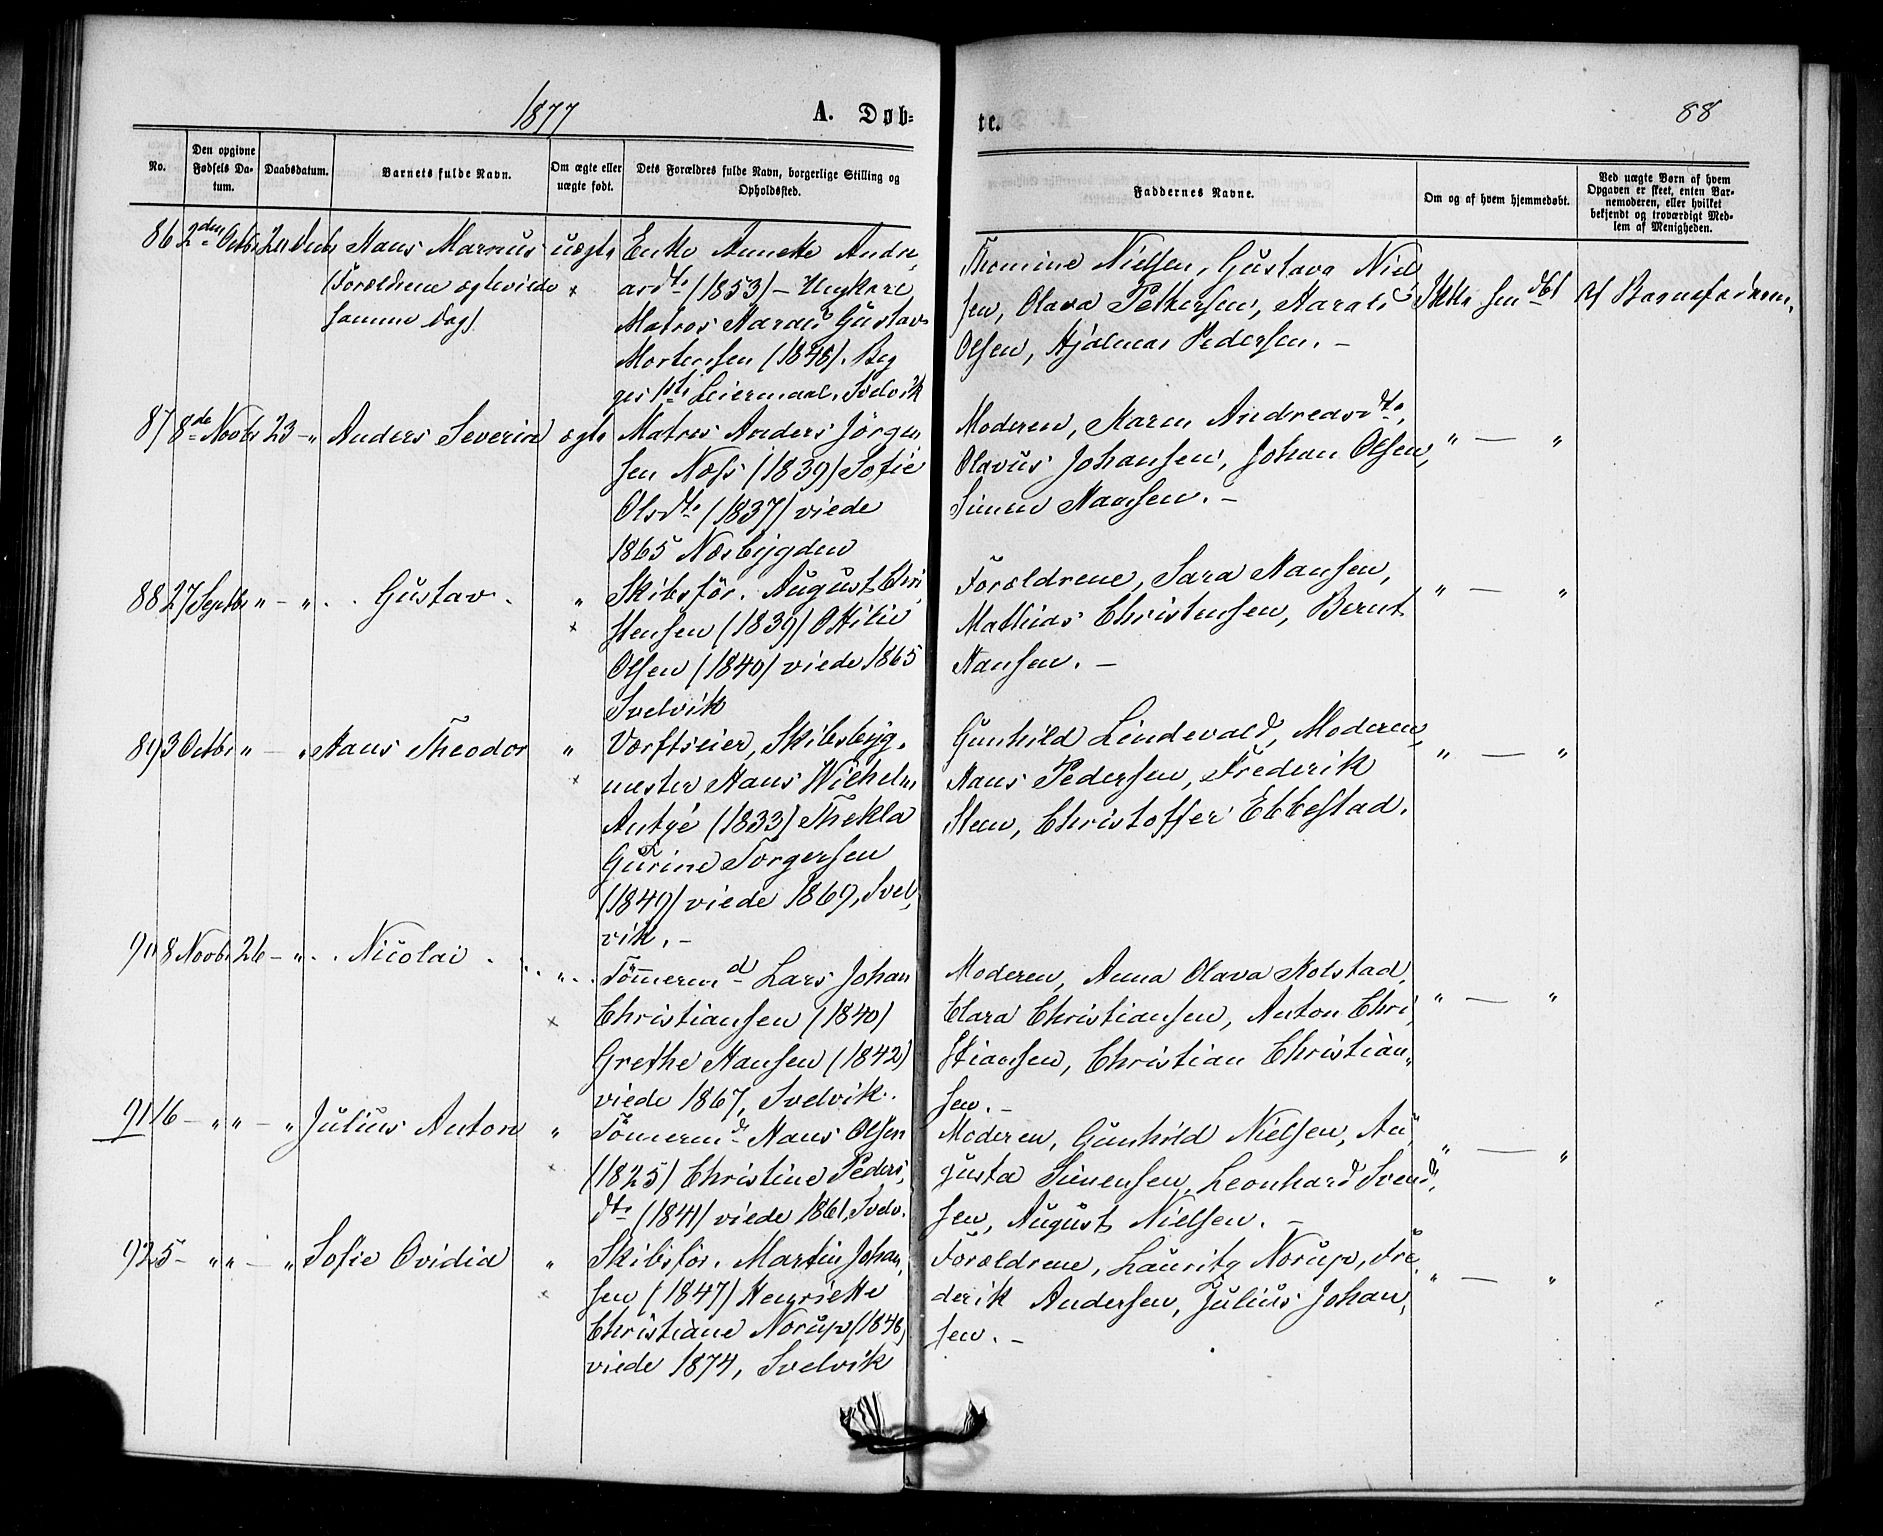 1877
A. Døb-
te.
88
No.
Den opgivne Fødsels Da-tum.
Daabsdatum.
Barnets fulde Navn.
Om ægte eller uægte født.
Dets Forældres fulde Navn, borgerlige Stilling og Opholdssted.
Faddernes Navne.
Om og af hvem hjemmedøbt.
Ved uægte Børn af hvem Opgaven er skeet, enten Bar-nemoderen, eller hvilket bekjendt og troværdigt Med-lem af Menigheden.
86 2den Octbr Hans Marius uægte Enke Annette Andre,
(Forældrene ægteviede × asdtr (1853) – Ungkarl
samme Dag) Matros Harald Gustav
Mortensen (1848). Beg
ges 1ste Leiermaal. Svelvik
Thomine Nielsen, Gustava Niel
sen, Olava Pettersen, Harald Ikke hendbt Af Barnefaderen.
Olsen, Hjalmar Pedersen. –
87 8de Novbr 23 – " Anders Severin ægte Matros Anders Jörgen
sen Næss (1839) Sofie
Olsdtr (1837) viede
1865 Nesbygden
Moderen, Karen Andreasdtr,
Olavus Johansen, Johan Olsen, " — "
Simen Hansen. –
88 27 Septbr " – " . . Gustav . " Skibsför. August Chri
× stensen (1839) Ottilie
Olsen (1840) viede 1865
Svelvik
Forældrene, Sara Hansen, " — "
Mathias Christensen, Bernt
Hansen. –
89 3 Octbr " – " Hans Theodor " Værftseier, Skibsbyg.
× mester Hans Wilhelm
Antgé (1833) Thekla
Gurine Torgersen
(1849) viede 1869, Svel,
vik. –
Gunhild Lindevald, Moderen,
Hans Pedersen, Frederik " — "
Sten, Christoffer Ebbestad.
90 8 Novbr 26 – " . . Nicolai . . . " . . Tömermd Lars Johan
× Christiansen (1840)
Grethe Hansen (1842)
viede 1867, Svelvik.
Moderen, Anna Olava Kolstad,
Clara Christiansen, Anton Chri, " — "
stiansen, Christian Christian,
sen. –
91 16 – " " – " Julius Anton " Tömermd Hans Olsen
× (1825) Christine Peders,
dtr (1841) viede 1861, Svelv.
Moderen, Gunhild Nielsen, Au,
gusta Simensen, Leonhard Svend, " — "
sen, August Nielsen. –
92 5 – " " – " Sofie Ovidia " Skibsför. Martin Johan,
× sen (1847) Henriette
Christiane Norup (1848)
viede 1874, Svelvik
Forældrene, Lauritz Norup, Fre,
derik Andersen, Julius Johan, " — "
sen. –